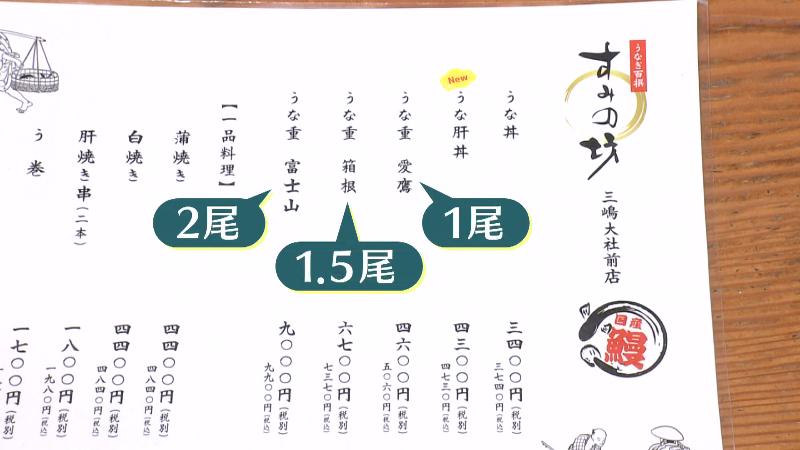 うなぎ百撰
すみの坊
三嶋大社前店
国産
鰻
うな丼
三四〇〇円(税別)
三七四〇円(税込)
New
うな肝丼
四三〇〇円(税別)
四七三〇円(税込)
うな重 愛鷹
四六〇〇円(税別)
五〇六〇円(税込)
1尾
うな重 箱根
六七〇〇円(税別)
七三七〇円(税込)
1.5尾
うな重 富士山
九〇〇〇円(税別)
九九〇〇円(税込)
2尾
【一品料理】
蒲焼き
四四〇〇円(税別)
四八四〇円(税込)
白焼き
四四〇〇円(税別)
四八四〇円(税込)
肝焼き串(二本)
一八〇〇円(税別)
一九八〇円(税込)
う巻
一七〇〇円(税別)